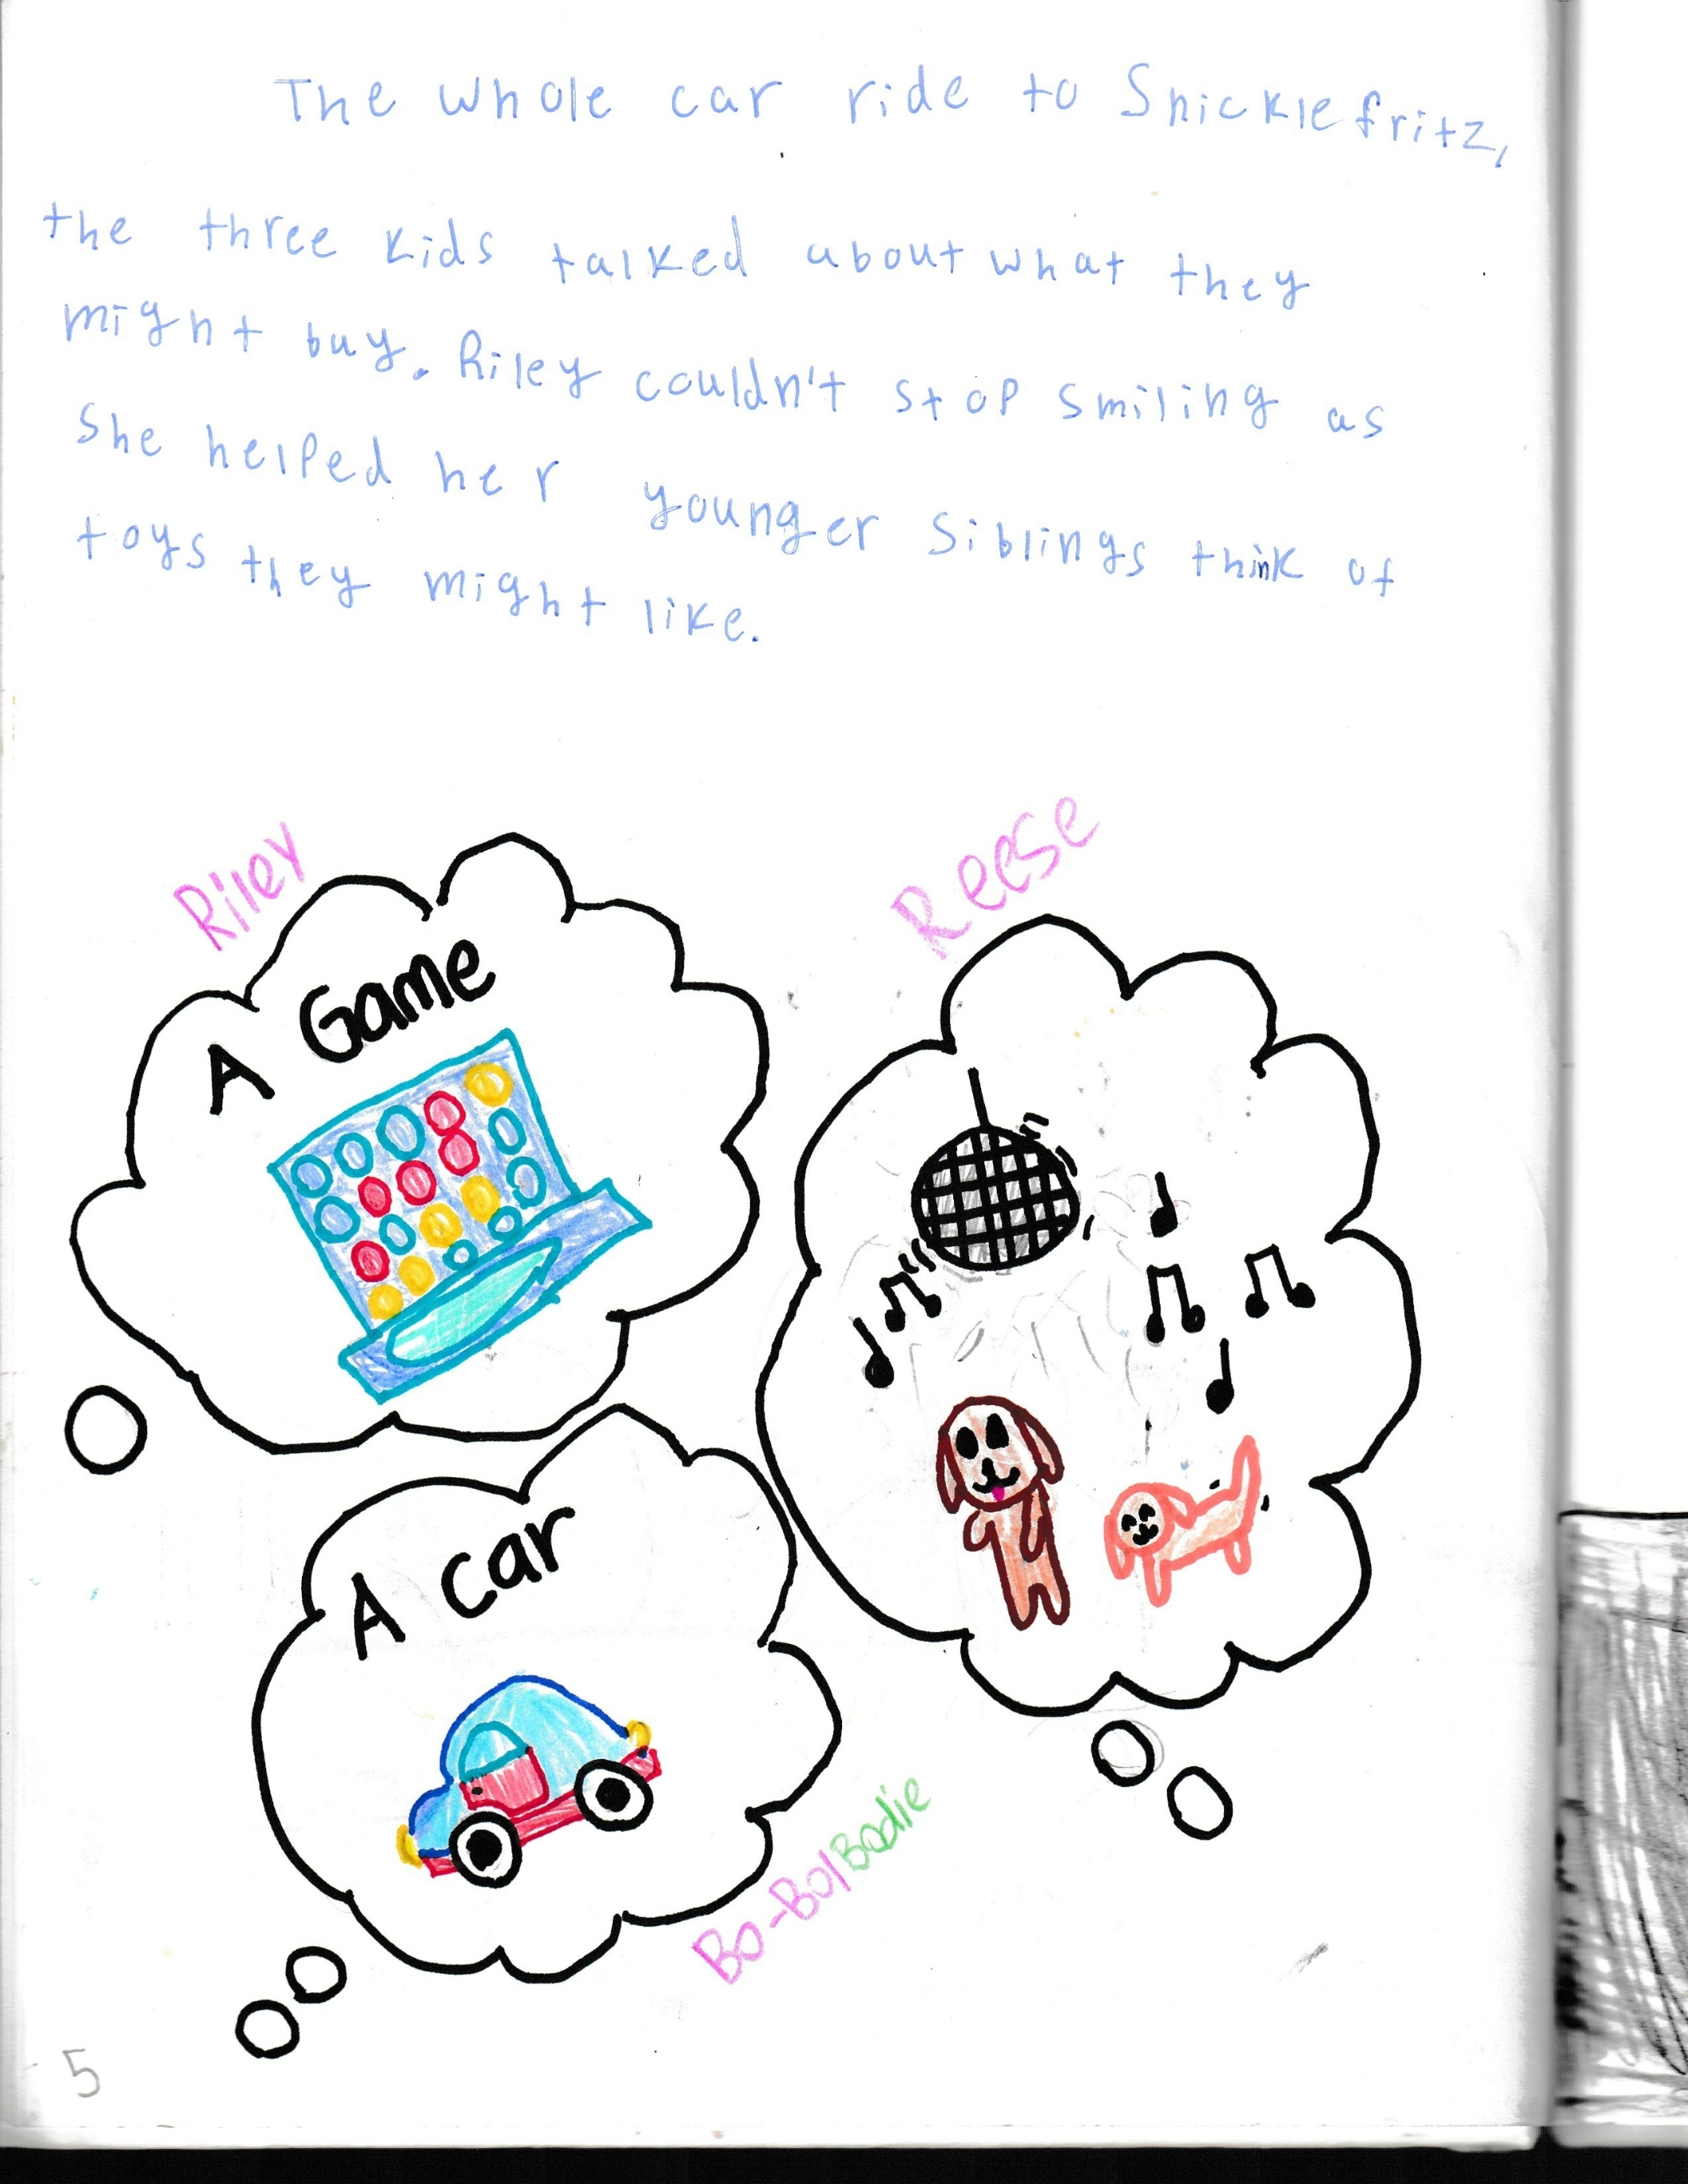 The whole car ride to Snicklefritz,
the three kids talked about what they
might buy. Riley couldn't stop smiling as
She helped her younger siblings think of
toys they might like.
Riley
Reese
A Game
A car
Bo-Bo/Bodie
5